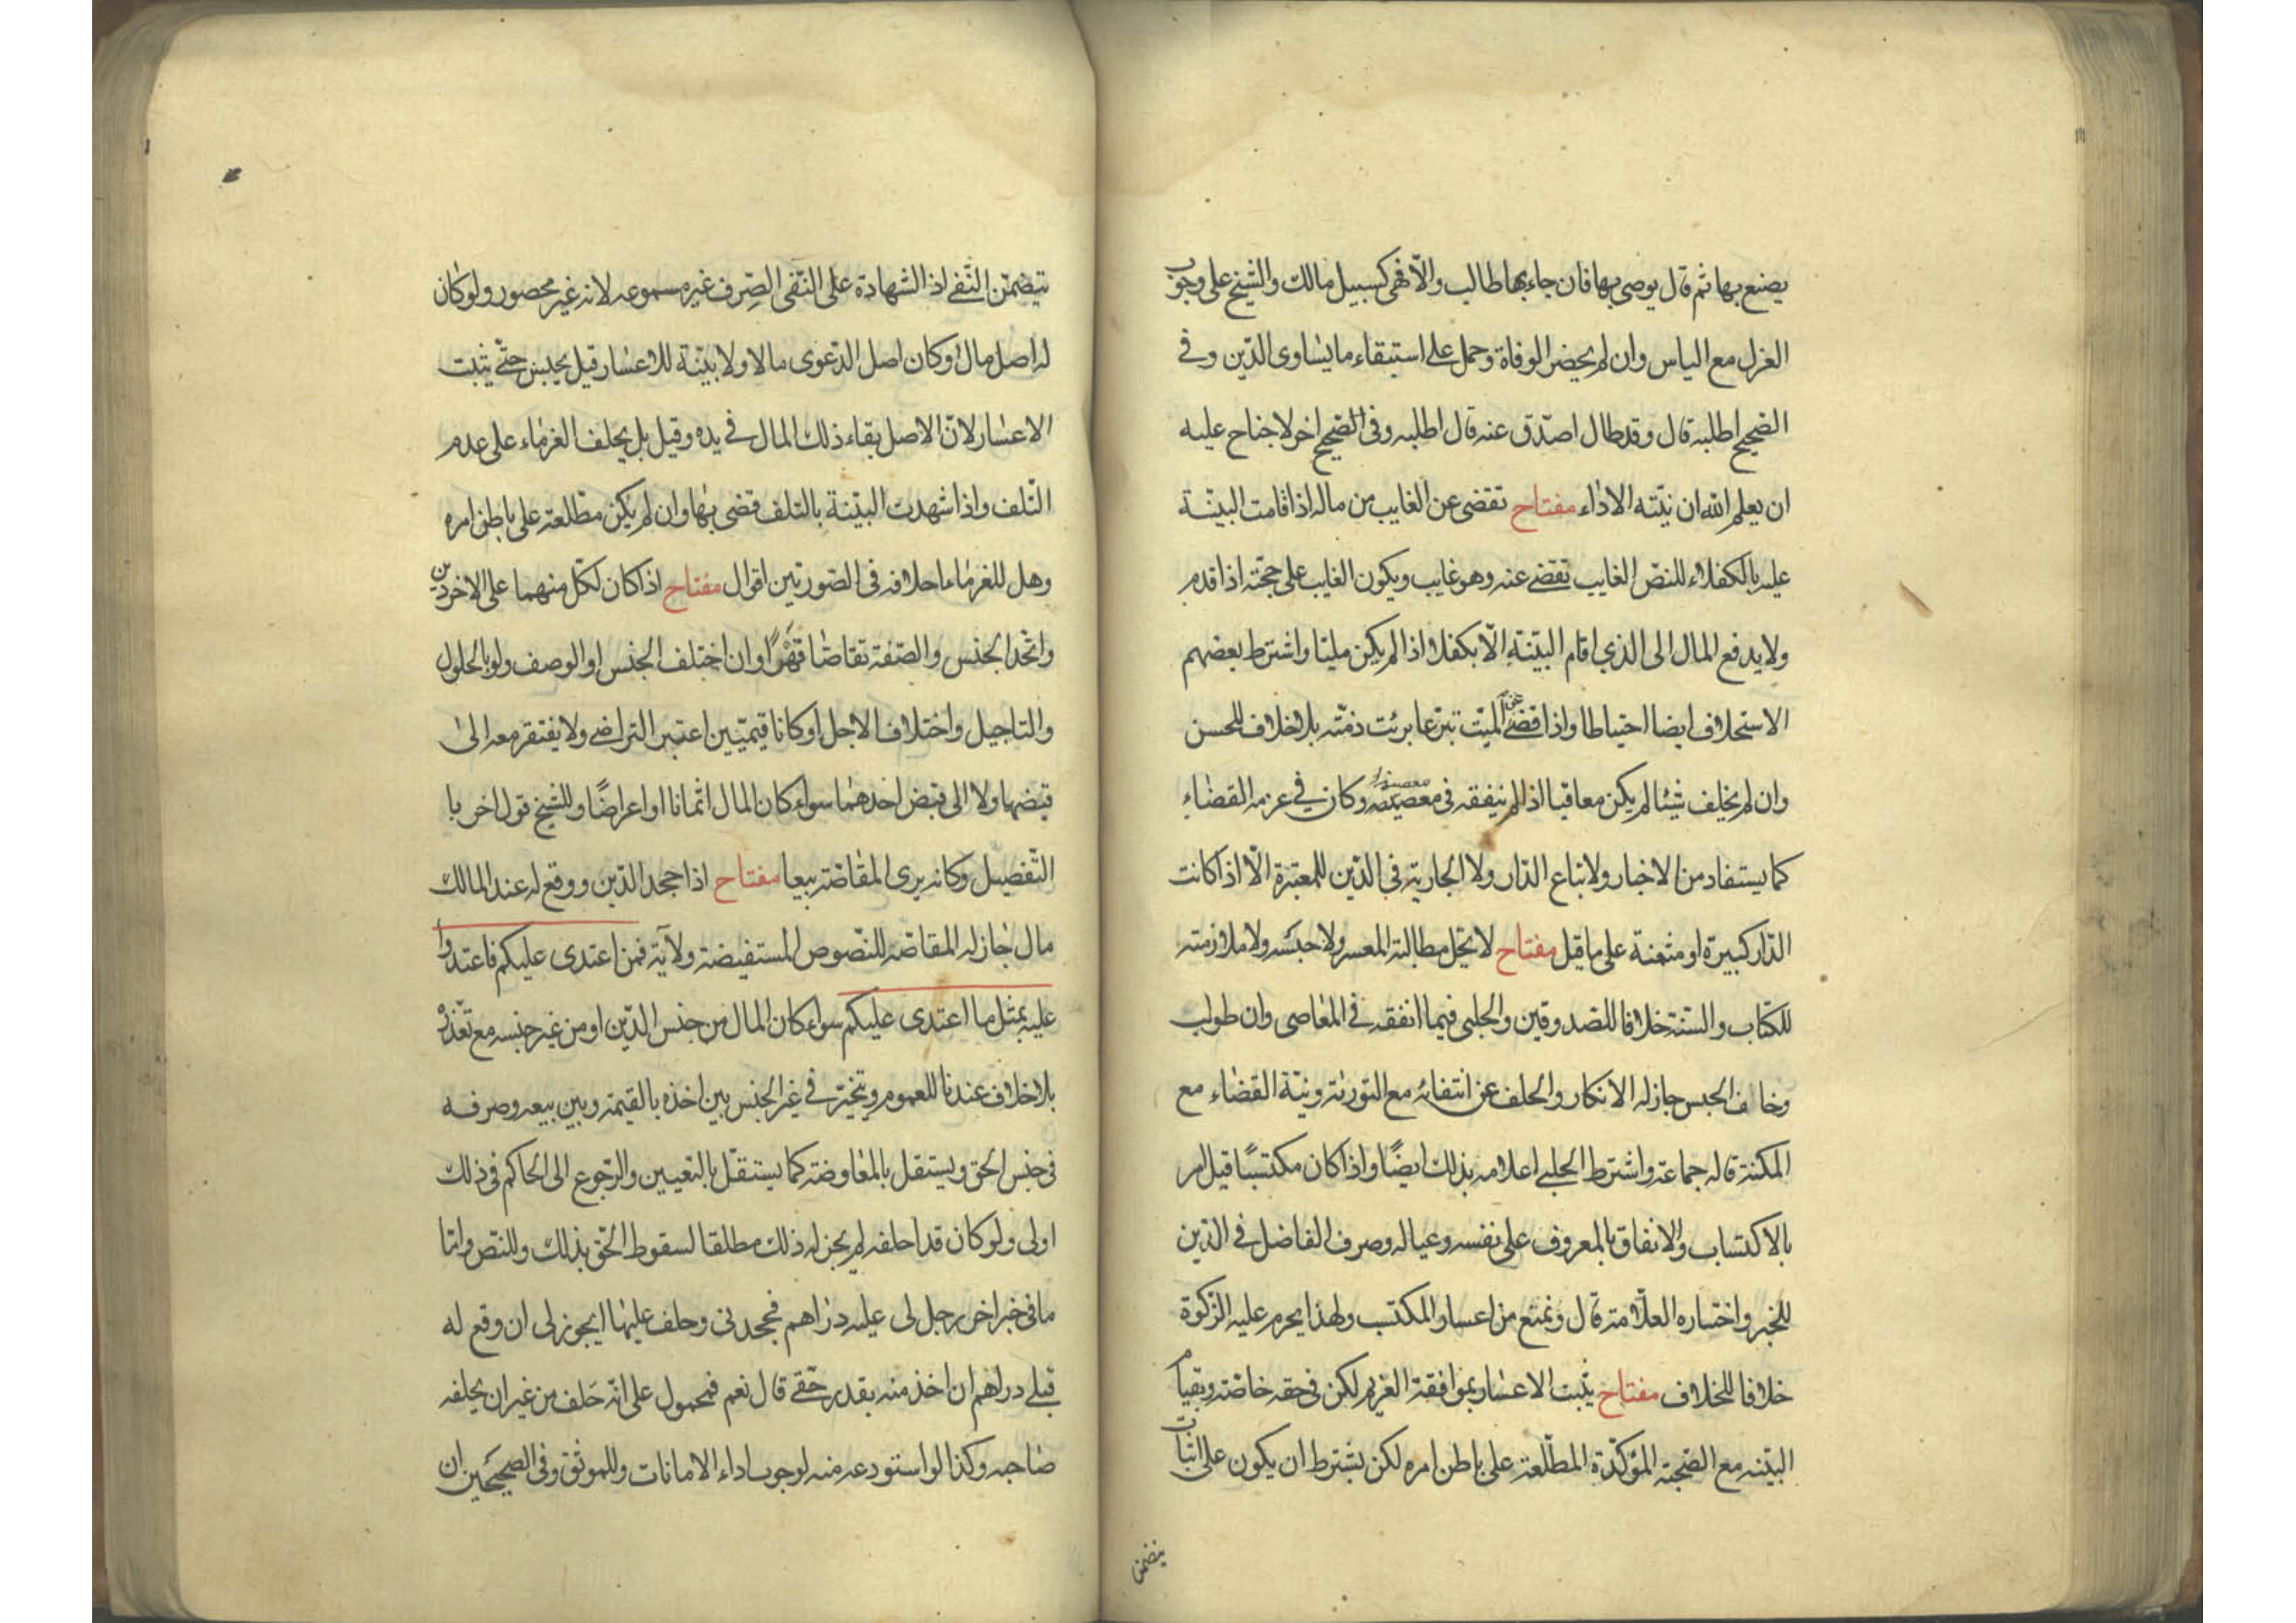 يصنع بها ثم قال يوصى بها فان جاء بها طالب والا فهى كسبيل مالك والشيخ على وجوب
العزل مع الياس وان لم يحضر الوفاة وحمل على استبقاء ما يساوى الدين وفي
الصحيح اطلبه قال وقد طال اصدق عنه قال اطلبه وفى الصحيح اخر لا جناح عليه
ان يعلم الله ان نيته الاداء مفتاح تقضى عن الغايب من ماله اذا قامت البينة
عليه بالكفلاء للنص الغايب تقضى عنه وهو غايب ويكون الغايب على حجته اذا قدم
ولا يدفع المال الى الذي اقام البينة الا بكفلاء اذا لم يكن مليا واشترط بعضهم
الاستحلاف ايضا احتياطا واذا قضى عن الميت تبرعا برئت ذمته بلا خلاف للحسن
وان لم يخلف شيئا لم يكن معاقبا اذا لم ينفقه فى معصية وكان في عزمه القضاء
كما يستفاد من الاخبار ولا تباع الدار ولا الجارية فى الدين للمعتبرة الا اذا كانت
الدار كبيرة او مثمنة على ما قيل مفتاح لا يحل مطالبة المعسر ولا حبسه ولا ملازمته
للكتاب والسنة خلافا للصدوقين والحلبى فيما انفقه في المعاصى وان طولب
وخاف الحبس جاز له الانكار والحلف عن انتفائه مع التورية ونية القضاء مع
المكنة قاله جماعة واشترط الحلبي اعلامه بذلك ايضا واذا كان مكتسبًا قيل امر
بالاكتساب والانفاق بالمعروف على نفسه وعياله وصرف الفاضل في الدين
للخبر واختاره العلامة قال ونمنع من اعسار المكتسب ولهذا يحرم عليه الزكوة
خلافا للخلاف مفتاح يثبت الاعسار بموافقة الغريم لكن فى حقه خاصة وبقيام
البينه مع الصحبة المؤكدة المطلعة على باطن امره لكن يشترط ان يكون على اثبات
يتضمن
تتضمن النفى اذ الشهادة على النفى الصرف غير مسموعه لانه غير محصور ولو كان
له اصل مال او كان اصل الدعوى مالا ولا بينة للاعسار قيل يحبس حتى يثبت
الاعسار لان الاصل بقاء ذلك المال في يده وقيل بل يحلف الغرماء على عدم
التلف واذا شهدت البينة بالتلف قضى بها وان لم يكن مطلعة على باطن امره
وهل للغرماء احلافه فى الصورتين اقوال مفتاح اذا كان لكل منهما على الاخر دين
واتحد الجنس والصفة تقاصا قهرًا وان اختلف الجنس او الوصف ولو بالحلول
والتاجيل واختلاف الاجل او كانا قيميين اعتبر التراضى ولا يفتقر معه الى
قبضها ولا الى قبض احدهما سواء كان المال اثمانا او اعراضًا وللشيخ قول اخر با
التفصيل وكانه يرى المقاصه بيعا مفتاح اذا جحد الدين ووقع له عند المالك
مال جاز له المقاصه للنصوص المستفيضة ولآية فمن اعتدى عليكم فاعتدوا
عليه بمثل ما اعتدى عليكم سواء كان المال من جنس الدين او من غير جنسه مع تعذره
بلا خلاف عندنا للعموم ويتخير في غير الجنس بين اخذه بالقيمة وبين بيعه وصرفه
فى جنس الحق ويستقل بالمعاوضة كما يستقل بالتعيين والرجوع الى الحاكم فى ذلك
اولى ولو كان قد احلفه لم يجز له ذلك مطلقا لسقوط الحق بذلك وللنص واما
ما فى خبر اخر رجل لى عليه دراهم فجحدنى وحلف عليها ايجوز لى ان وقع له
قبلى دراهم ان اخذ منه بقدر حقى قال نعم فمحمول على انه حَلف من غير ان يحلفه
صاحبه وكذا لو استودعه منه لوجوب اداء الامانات وللموثق وفى الصحيحين ان